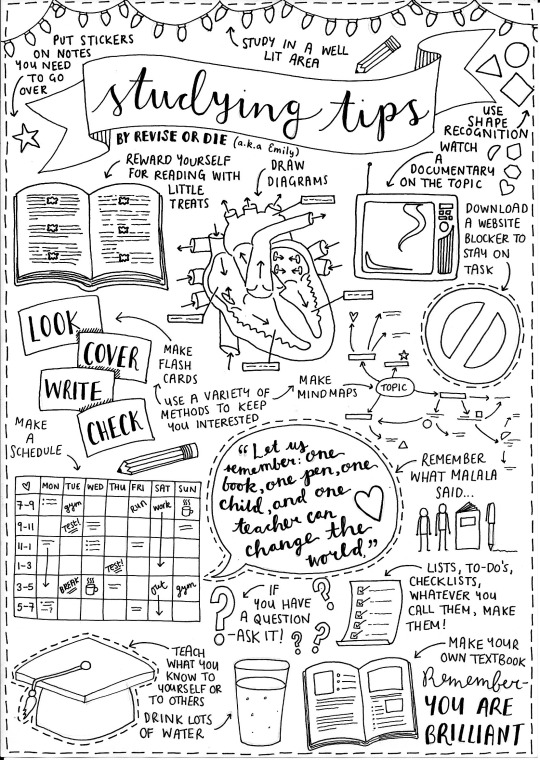 PUT STICKERS
ON NOTES
YOU NEED
TO GO
OVER
STUDY IN A WELL
LIT AREA
studying tips
BY REVISE OR DIE (a.k.a Emily)
USE
SHAPE
RECOGNITION
REWARD YOURSELF
FOR READING WITH
LITTLE
TREATS
DRAW
DIAGRAMS
WATCH
A
DOCUMENTARY
ON THE TOPIC
DOWNLOAD
A WEBSITE
BLOCKER TO
STAY ON
TASK
LOOK
COVER
WRITE
CHECK
MAKE
FLASH
CARDS
USE A VARIETY OF
METHODS TO KEEP
YOU INTERESTED
MAKE
MINDMAPS
TOPIC
MAKE
A
SCHEDULE
MON TUE WED THU FRI SAT SUN
7-9 gym RUN work
9-11 Test!
11-1
1-3 Test!
3-5 BREAK out gym
5-7
"Let us
remember: one
book, one pen, one
child, and one
teacher can
change the
world."
REMEMBER
WHAT MALALA
SAID...
IF
YOU HAVE
A QUESTION
-ASK IT!
LISTS, TO-DO'S,
CHECKLISTS,
WHATEVER YOU
CALL THEM, MAKE
THEM!
TEACH
WHAT YOU
KNOW TO
YOURSELF OR
TO OTHERS
DRINK LOTS
OF WATER
MAKE YOUR
OWN TEXTBOOK
Remember-
YOU ARE
BRILLIANT